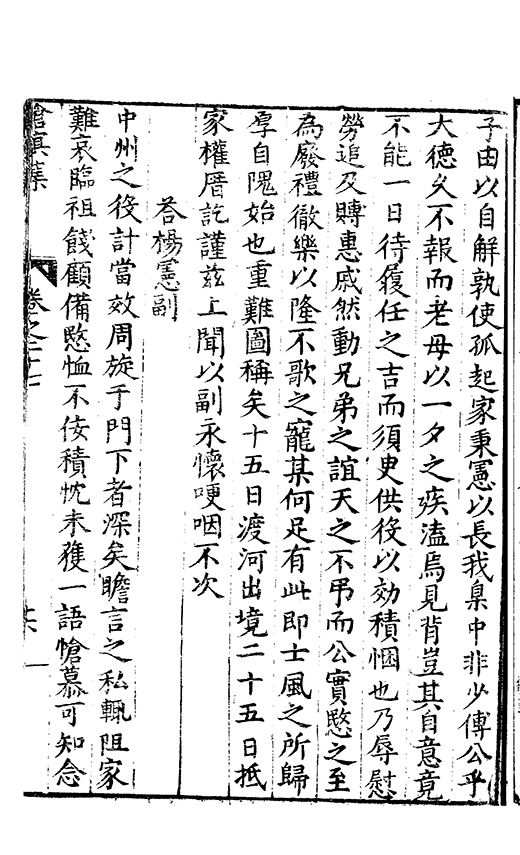 子由以自解孰使孤起家秉憲以長我臬中非少傅公乎
大德久不報而老母以一夕之疾溘焉見背豈其自意竟
不能一日待履任之吉而須臾供役以効積悃也乃辱慰
勞追及賻惠戚然動兄弟之誼天之不弔而公實愍之至
為廢禮徹樂以隆不歌之寵某何足有此即士風之所歸
厚自隗始也重難圖稱矣十五日渡河出境二十五日抵
家權厝訖謹玆上聞以副永懷哽咽不次
荅楊憲副
中州之役計當效周旋于門下者深矣瞻言之私輒阻家
難哀臨祖餞顧備愍恤不佞積忱未獲一語愴慕可知念
滄溟集
卷之二十七